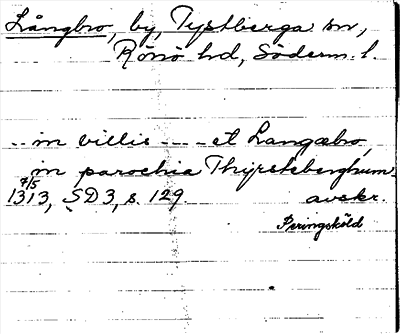 Långbro, by, Tystberga sn,
Rönö hd, Söderm. l.
-- in villis ---- et Langæbro,
in parochia Thyrsteberghum
7/5
1313, SD 3, s. 129. avskr.
Peringsköld